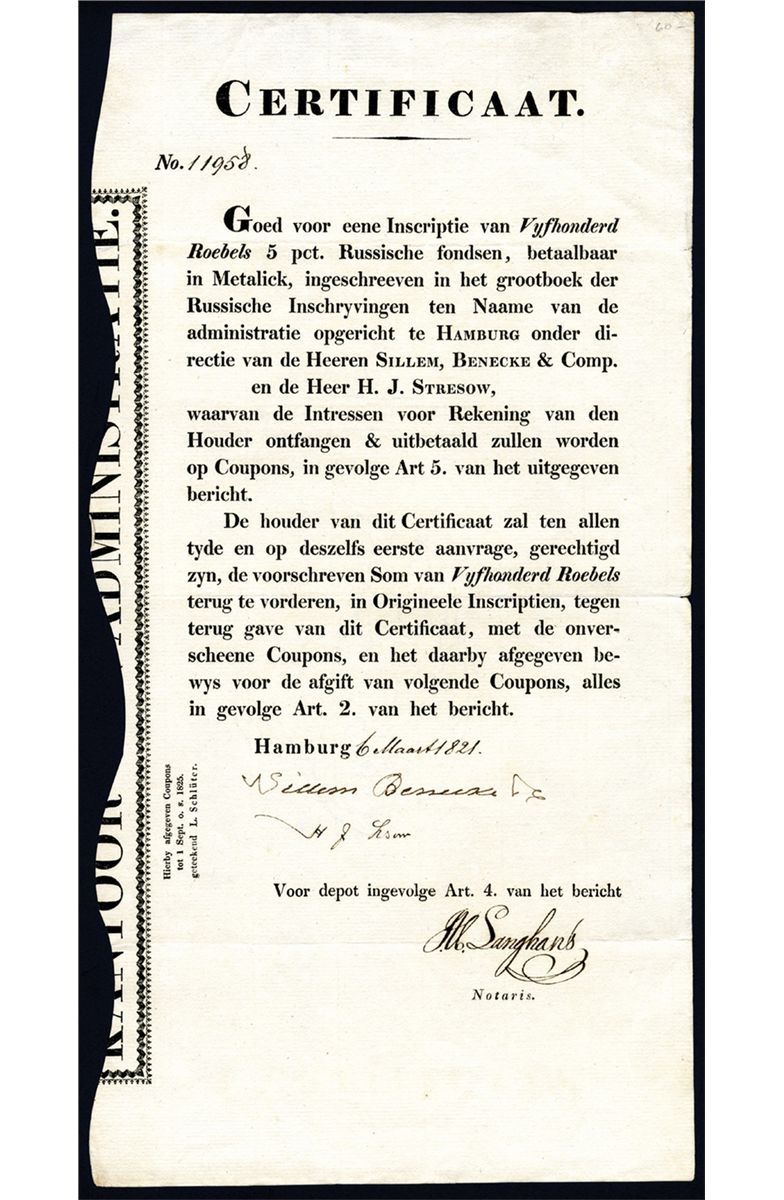 60-
CERTIFICAAT.
No. 11958.
Goed voor eene Inscriptie van Vyfhonderd
Roebels 5 pct. Russische fondsen, betaalbaar
in Metalick, ingeschreeven in het grootboek der
Russische Inschryvingen ten Naame van de
administratie opgericht te HAMBURG onder di-
rectie van de Heeren SILLEM, BENECKE & Comp.
en de Heer H. J. STRESOW,
waarvan de Intressen voor Rekening van den
Houder ontfangen & uitbetaald zullen worden
op Coupons, in gevolge Art 5. van het uitgegeven
bericht.
De houder van dit Certificaat zal ten allen
tyde en op deszelfs eerste aanvrage, gerechtigd
zyn, de voorschreven Som van Vyfhonderd Roebels
terug te vorderen, in Origineele Inscriptien, tegen
terug gave van dit Certificaat, met de onver-
scheene Coupons, en het daarby afgegeven be-
wys voor de afgift van volgende Coupons, alles
in gevolge Art. 2. van het bericht.
Hamburg 6 Maart 1821.
Sillem Benecke
H J
Voor depot ingevolge Art. 4. van het bericht
Langhans
Notaris.
Hierby afgegeven Coupons
tot 1 Sept. o. s. 1825.
geteekend L. Schlüter.
KANTOOR ADMINISTRATIE.